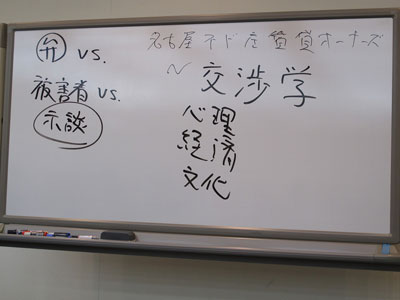 弁 vs.
被害者 vs.
示談
名古屋不ド产賃貸オーナーズ
~ 交渉学
心理
経済
文化